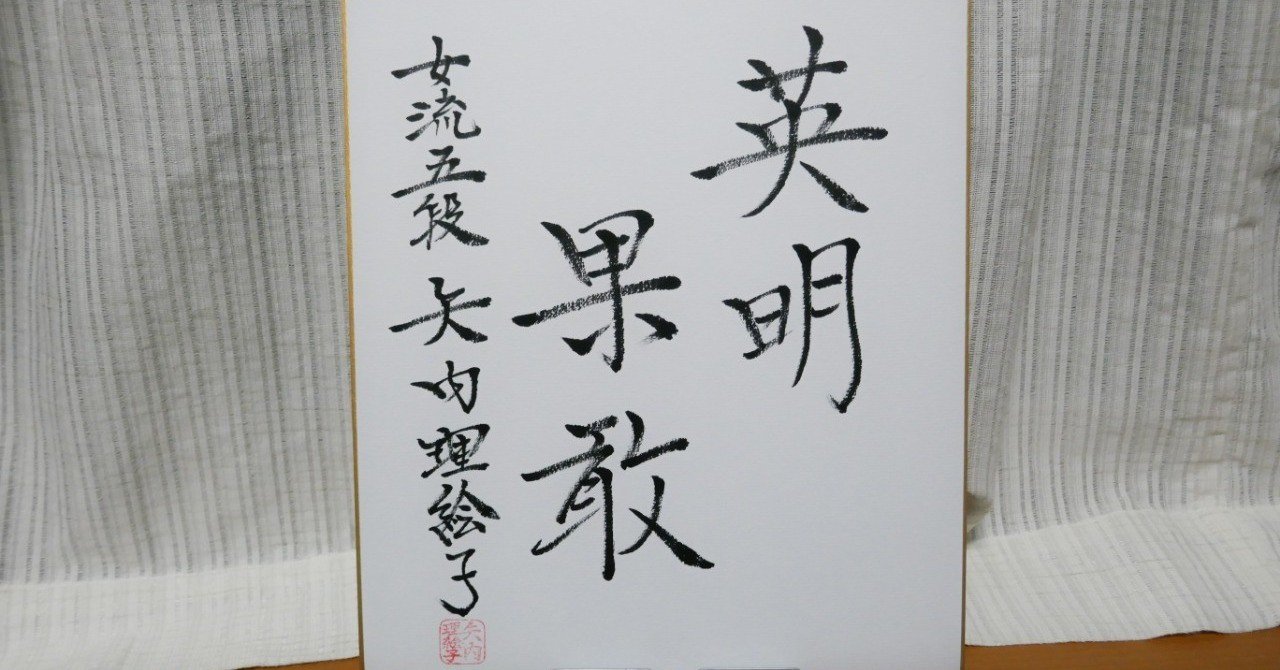 英明
果敢
女流五段 矢内理絵子
矢内
理絵子